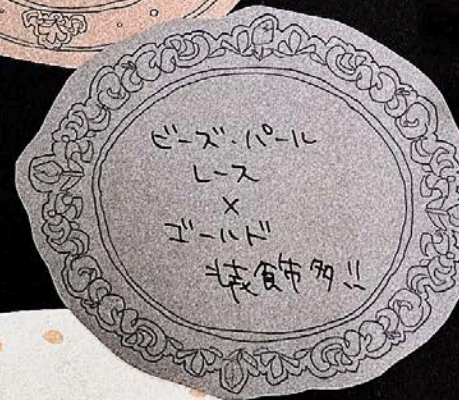 ビーズ・パール
レース
×
ゴールド
装飾多!!